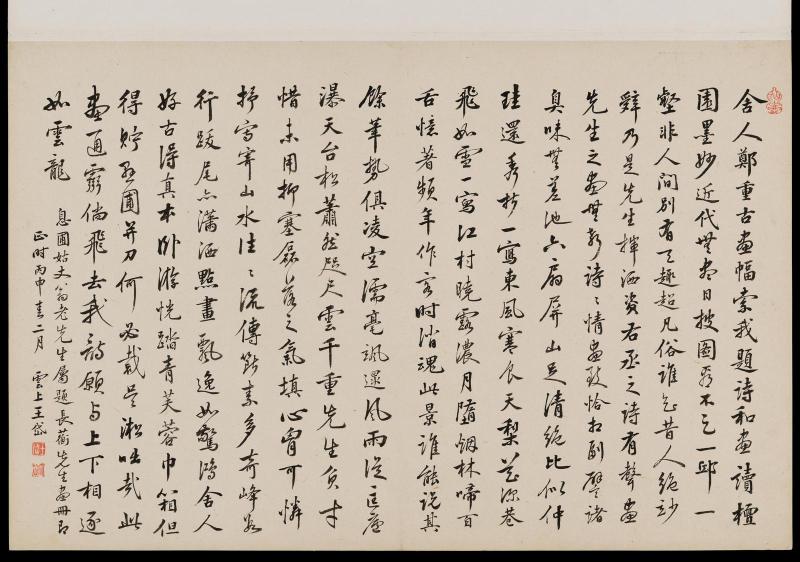 舍人鄭重古畫幅索我題詩和畫讀檀
園墨妙近代無盡日披圖看不足一邱一
壑非人間別有天趣超凡俗誰知昔人絕妙
辭乃是先生揮洒資右丞之詩有聲畫
先生之畫無聲詩詩情畫致恰相副譬諸
臭味無差池六扇屏山足清絕比似仲
珪還秀
一寫東風寒食天梨花深巷
飛如雪一寫江村曉露濃月隨烟林啼百
舌憶著頻年作客時消魂此景誰能說其
餘筆勢俱凌空濡毫颯遝風雨從匡廬
瀑天台松蕭然咫尺雲千重先生負才
惜未用抑塞磊落之氣填心胷可憐
抒寫寄山水往往流傳斷素多奇峰
行跋尾亦瀟洒點畫飄逸如驚鴻舍人
好古得真本卧游恍踏青芙蓉巾箱但
得貯玄圃并刀何必裁吳淞吁哉此
畫通窮倘飛去我亦願與上下相逐
如雲龍
息圃姑丈翁老先生屬題長蘅先生畫冊即
正時丙申春二月 雲上王岱